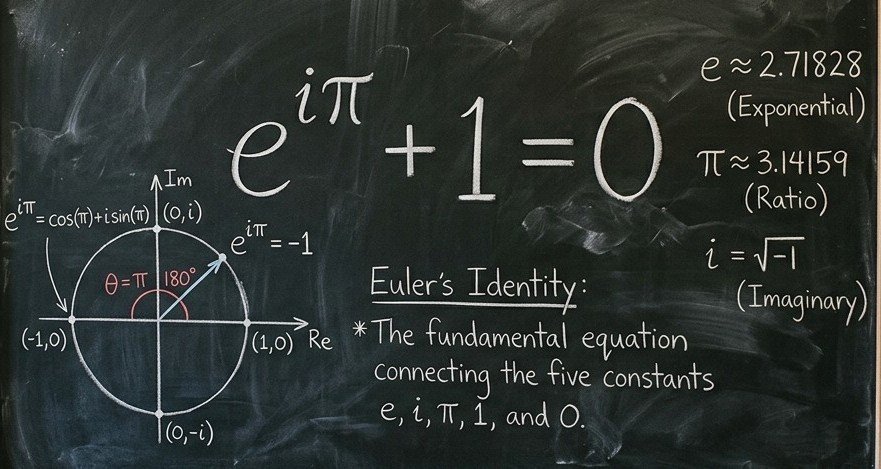 e^{iπ} + 1 = 0
e ≈ 2.71828
(Exponential)
π ≈ 3.14159
(Ratio)
i = √-1
(Imaginary)
Im
e^{iπ} = cos(π)+i sin(π)
(0,i)
e^{iπ} = -1
θ = π
180°
(-1,0)
(1,0)
Re
(0,-i)
Euler's Identity:
*The fundamental equation
connecting the five constants
e, i, π, 1, and 0.